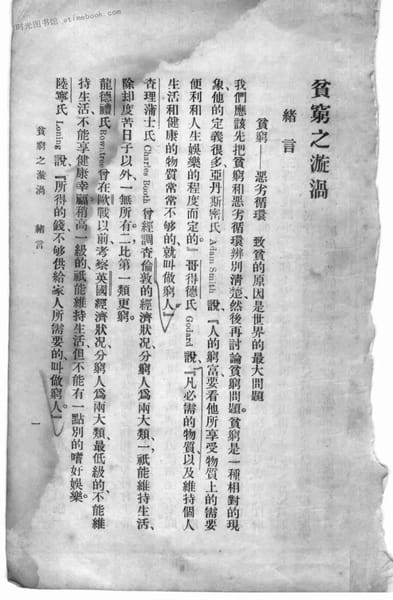 时光图书馆 www.etimebook.com
貧窮之漩渦
緒言
貧窮——惡劣循環　致貧的原因是世界的最大問題
我們應該先把貧窮和惡劣循環辨別清楚、然後再討論貧窮問題。貧窮是一種相對的現
象他的定義很多亞丹斯密氏 Adam Smith 說、『人的窮富要看他所享受物質上的需要
便利和人生娛樂的程度而定的。』哥得德氏 Godard 說、『凡必需的物質以及維持個人
生活和健康的物質常常不够的、就叫做窮人』
查理蒲士氏 Charles Booth 曾經調查倫敦的經濟狀况、分窮人爲兩大類、一祇能維持生活、
除却度苦日子以外、一無所有。二比第一類更窮。
龍德禮氏 Rowntree 曾在歐戰以前考察英國經濟狀况、分窮人爲兩大類、最低級的不能維
持生活、不能享健康幸福稍高一級的、祇能維持生活但不能有一點別的嗜好娛樂。
陸寧氏 Loning 說、『所得的錢不够供給家人所需要的、叫做窮人』。
貧窮之漩渦　緒言
一